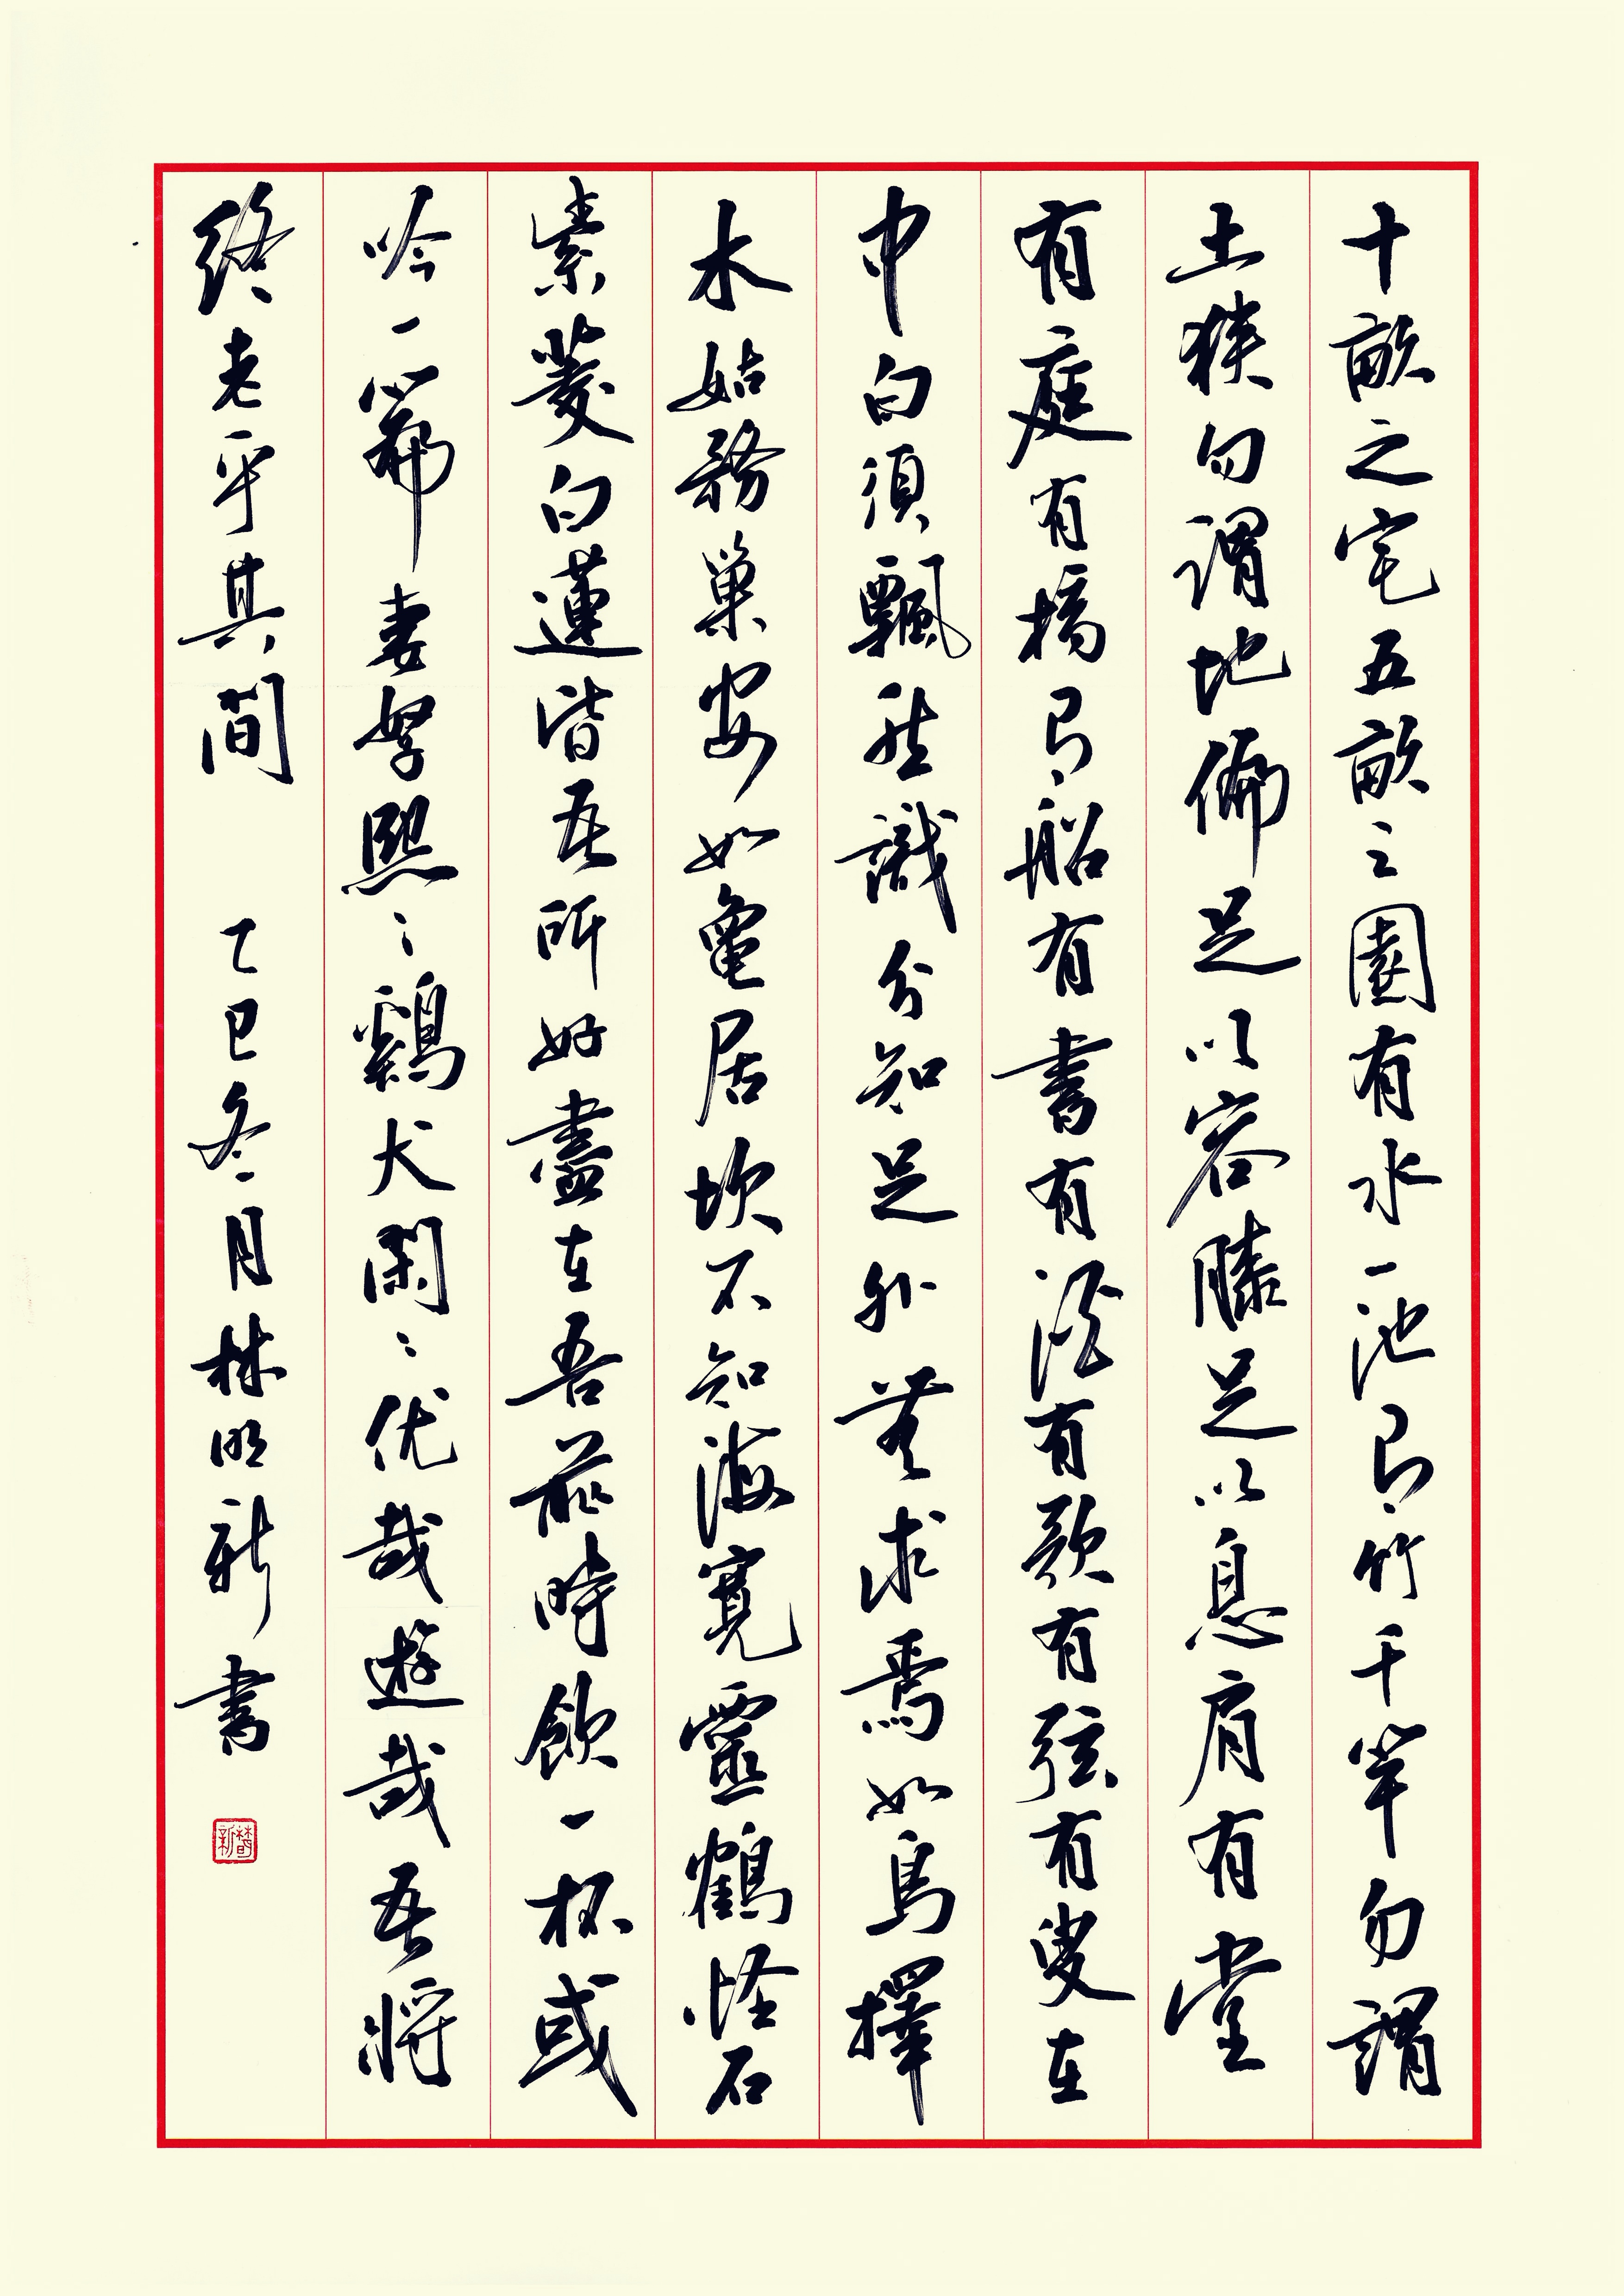 十畝之宅五畝之園有水一池有竹千竿勿謂
土狹勿謂地偏足以容膝足以息肩有堂
有庭有橋有船有書有酒有歌有弦有叟在
中白須飄然識分知足外無求焉如鳥擇
木姑務巢安如龜居坎不知海寬靈鶴怪石
紫菱白蓮皆吾所好盡在吾前時飲一杯或
吟一篇妻孥熙〻鷄犬閑〻优哉遊哉吾將
終老乎其間 乙巳冬月林明新書